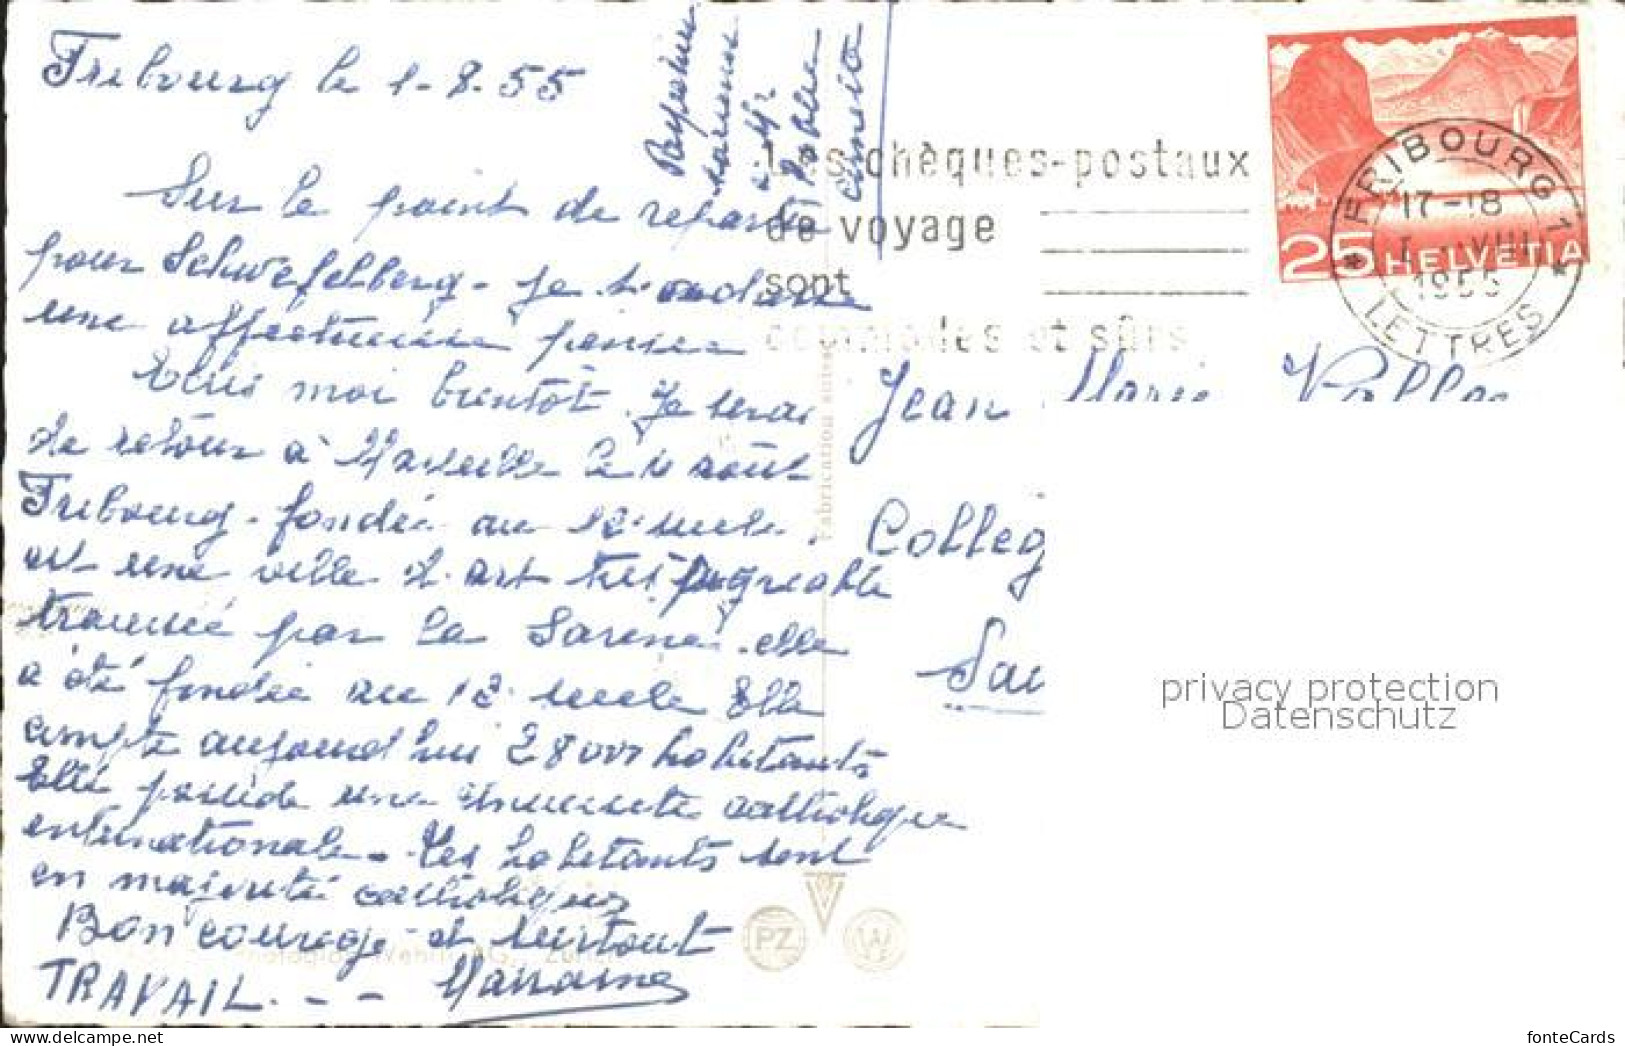 Fribourg le 1-8.55
Sur le point de repartir
pour Schwefelberg - je t'
une affectueuse pensée
Ecris moi bientôt. Je serai
de retour à Marseille le 10 août
Fribourg - fondée au 12 siecle.
est une ville d'art très agreable
traversée par la Sarine. elle
a été fondée au 12 siecle Elle
compte aujourd'hui 28000 habitants
Elle possède une université catholique
internationale - Les habitants sont
en majorité catholiques
Bon courage et surtout
TRAVAIL - - Marraine
Les chèques-postaux
de voyage
sont
commodes et sûrs
FRIBOURG 1
17-18
1955
LETTRES
25 HELVETIA
Jean Marie
Colleg
Fabrication suisse
PZ
W
Wehrli AG, Zürich
privacy protection
Datenschutz
fonteCards